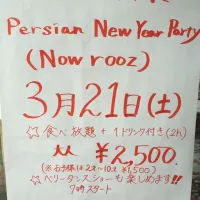 Persian New Year Party
(Now rooz)
3月21日(土)
☆食べ放題+1ドリンク付き(2h)
大人 ¥2,500.
(※お子様は2才~10才 ¥1,500)
☆ベリーダンスショーも楽しめます!!
7時スタート